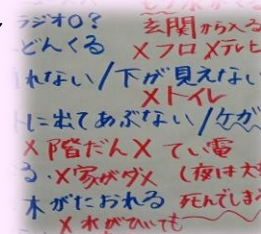 ラジオ〇? 玄関から入る
どんくる ×フロ ×テレビ
れない/下が見えない
×トイレ
トに出てあぶない/ケガ
×階だん× てい電
る・×家がダメ (夜は大
木がたおれる 死んでしまう
×水がひいても